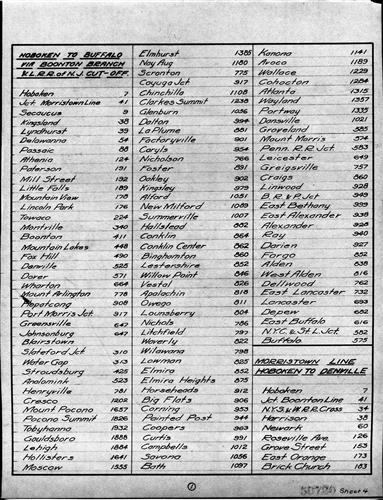 HOBOKEN TO BUFFALO
VIA BOONTON BRANCH
& L.R.R. OF N.J. CUT-OFF
Hoboken 7
Jct Morristown Line 41
Secaucus 9
Kingsland 38
Lyndhurst 39
Delawanna 54
Passaic 88
Athenia 124
Paterson 191
Mill Street 192
Little Falls 189
Mountain View 178
Lincoln Park 176
Towaco 224
Montville 340
Boonton 411
Mountain Lakes 448
Fox Hill 490
Denville 525
Dover 571
Wharton 664
Mount Arlington 778
Hopatcong 908
Port Morris Jct 917
Greensville 647
Johnsonburg 647
Blairstown
Slateford Jct 310
Water Gap 313
Stroudsburg 425
Analomink 523
Henryville 781
Cresco 1202
Mount Pocono 1657
Pocono Summit 1826
Tobyhanna 1932
Gouldsboro 1888
Lehigh 1884
Hollisters 1641
Moscow 1555
Elmhurst 1385
Nay Aug 1180
Scranton 775
Cayuga Jct 917
Chinchilla 1108
Clarkes Summit 1238
Glenburn 1056
Dalton 994
La Plume 881
Factoryville 901
Caryls 954
Nicholson 766
Foster 891
Oakley 902
Kingsley 979
Alford 1051
New Milford 1089
Summerville 1007
Hallstead 882
Conklin 864
Conklin Center 862
Binghamton 860
Lestershire 852
Willow Point 846
Vestal 826
Apalachin 818
Owego 811
Lounsberry 804
Nichols 786
Litchfield 797
Waverly 822
Hilawana 798
Lowman 825
Elmira 852
Elmira Heights 875
Horseheads 912
Big Flats 906
Corning 953
Painted Post 944
Coopers 963
Curtis 991
Campbells 1012
Savona 1056
Bath 1097
Kanona 1141
Avoca 1189
Wallace 1229
Cohocton 1284
Atlanta 1315
Wayland 1357
Portway 1335
Dansville 1021
Groveland 585
Mount Morris 574
Penn. R.R. Jct 583
Leicester 649
Greigsville 757
Craigs 860
Linwood 928
B.R. & P. Jct 949
East Bethany 999
East Alexander 938
Alexander 928
Ray 940
Darien 927
Fargo 852
Alden 838
West Alden 816
Dellwood 762
East Lancaster 732
Lancaster 693
Depew 682
East Buffalo 616
N.Y.C. & St.L. Jct 582
Buffalo 575
MORRISTOWN LINE
HOBOKEN TO DENVILLE
Hoboken 7
Jct Boonton Line 41
N.Y.S. & W.R.R. Cross 34
Harrison 38
Newark 60
Roseville Ave. 126
Grove Street 153
East Orange 173
Brick Church 183
1
Sheet 4